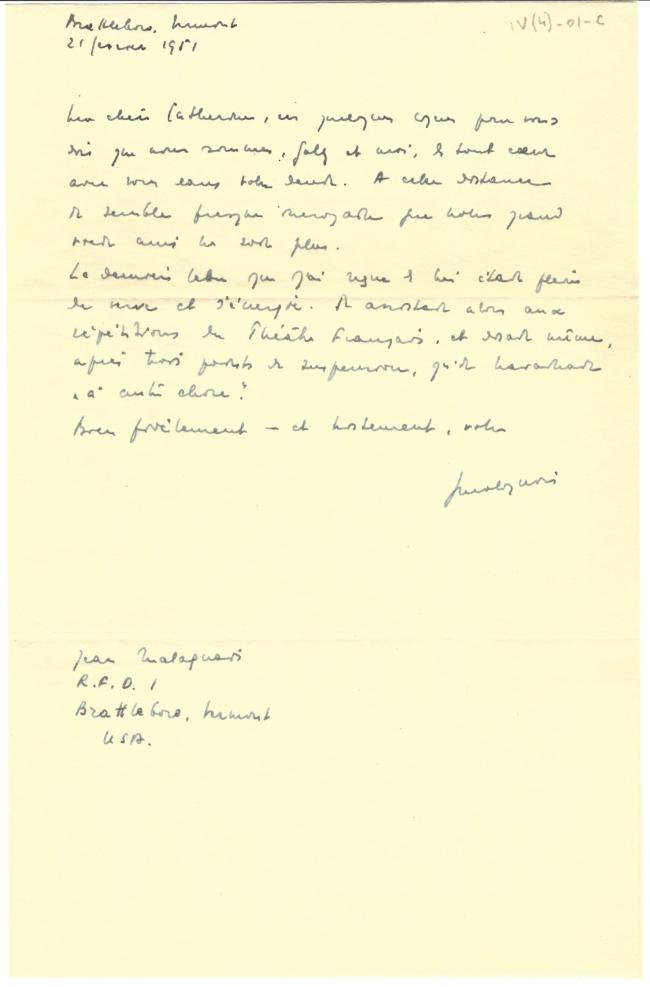 Brattleboro, Vermont
IV(4)-01-C
21 février 1951
Ma chère Catherine, ces quelques lignes pour vous
dire que nous sommes, Galy et moi, de tout cœur
avec vous dans votre deuil. A cette distance
il semble presque incroyable que notre grand
ami ne soit plus.
La dernière lettre que j'ai reçue de lui était pleine
de verve et d'énergie. Il assistait alors aux
répétitions du Théâtre Français, et disait même,
après trois points de suspension, qu'il travaillait
"à autre chose".
Bien fidèlement – et tristement, votre
Jmalaquais
Jean Malaquais
R.F.D. 1
Brattleboro, Vermont
USA.